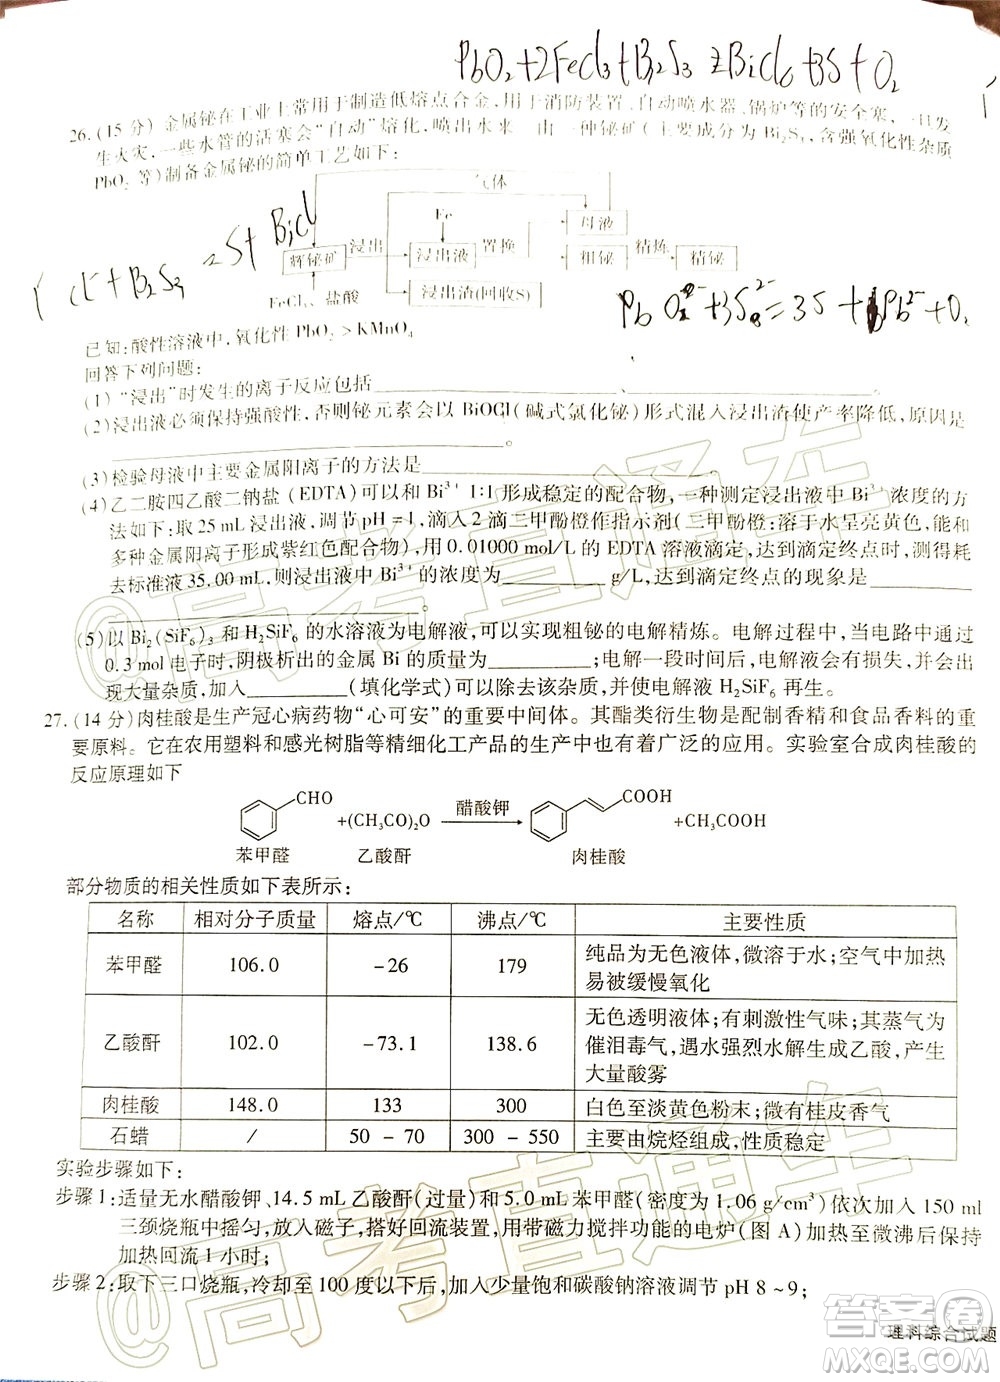 PbO₂+2FeCl₃+Bi₂S₃ = BiCl₆+3S+O₂
26.(15 分) 金属铋在工业上常用于制造低熔点合金,用于消防装置、自动喷水器、锅炉等的安全塞,一旦发
生火灾,一些水管的活塞会“自动”熔化,喷出水来。由一种铋矿(主要成分为 Bi₂S₃,含强氧化性杂质
PbO₂ 等)制备金属铋的简单工艺如下:
气体
Fe
母液
辉铋矿
浸出
浸出液
置换
粗铋
精炼
精铋
FeCl₃、盐酸
浸出渣(回收S)
Cl⁻+B₂S₃ 2S+BiCl
PbO₂²⁻+3S²⁻=3S+Pb²⁻+O₂
已知:酸性溶液中,氧化性 PbO₂＞KMnO₄
回答下列问题:
(1) “浸出”时发生的离子反应包括
(2)浸出液必须保持强酸性,否则铋元素会以 BiOCl(碱式氯化铋)形式混入浸出渣使产率降低,原因是
。
(3)检验母液中主要金属阳离子的方法是。
(4)乙二胺四乙酸二钠盐(EDTA)可以和 Bi³⁺ 1∶1 形成稳定的配合物,一种测定浸出液中 Bi³⁺浓度的方
法如下:取 25 mL 浸出液,调节 pH=1,滴入 2 滴二甲酚橙作指示剂(二甲酚橙:溶于水呈亮黄色,能与
多种金属阳离子形成紫红色配合物),用 0.01000 mol/L 的 EDTA 溶液滴定,达到滴定终点时,测得耗
去标准液 35.00 mL,则浸出液中 Bi³⁺的浓度为 g/L,达到滴定终点的现象是
。
(5)以 Bi₂(SiF₆)₃ 和 H₂SiF₆ 的水溶液为电解液,可以实现粗铋的电解精炼。电解过程中,当电路中通过
0.3 mol 电子时,阴极析出的金属 Bi 的质量为 ;电解一段时间后,电解液会有损失,并会出
现大量杂质,加入 (填化学式)可以除去该杂质,并使电解液 H₂SiF₆ 再生。
27.(14 分)肉桂酸是生产冠心病药物“心可安”的重要中间体。其酯类衍生物是配制香精和食品香料的重
要原料。它在农用塑料和感光树脂等精细化工产品的生产中也有着广泛的应用。实验室合成肉桂酸的
反应原理如下
CHO +(CH₃CO)₂O 醋酸钾 COOH +CH₃COOH
苯甲醛 乙酸酐 肉桂酸
部分物质的相关性质如下表所示:
名称 相对分子质量 熔点/℃ 沸点/℃ 主要性质
苯甲醛 106.0 −26 179 纯品为无色液体,微溶于水;空气中加热
易被缓慢氧化
乙酸酐 102.0 −73.1 138.6 无色透明液体;有刺激性气味;其蒸气为
催泪毒气,遇水强烈水解生成乙酸,产生
大量酸雾
肉桂酸 148.0 133 300 白色至淡黄色粉末;微有桂皮香气
石蜡 / 50－70 300－550 主要由烷烃组成,性质稳定
实验步骤如下:
步骤 1:适量无水醋酸钾、14.5 mL 乙酸酐(过量)和 5.0 mL 苯甲醛(密度为 1.06 g/cm³)依次加入 150 ml
三颈烧瓶中摇匀,放入磁子,搭好回流装置,用带磁力搅拌功能的电炉(图 A)加热至微沸后保持
加热回流 1 小时;
步骤 2:取下三口烧瓶,冷却至 100 度以下后,加入少量饱和碳酸钠溶液调节 pH 8～9;
理科综合试题
@高考直通车
@高考直通车
答案卷
MXQE.COM